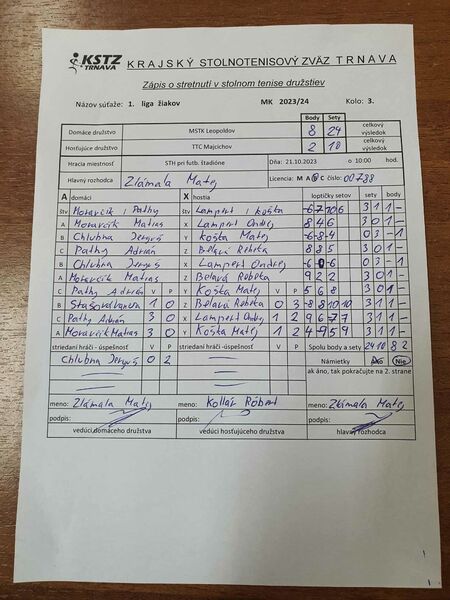 KSTZ TRNAVA KRAJSKÝ STOLNOTENISOVÝ ZVÄZ TRNAVA
Zápis o stretnutí v stolnom tenise družstiev
Názov súťaže: 1. liga žiakov MK 2023/24 Kolo: 3.
Body Sety celkový výsledok
Domáce družstvo MSTK Leopoldov 8 24
Hosťujúce družstvo TTC Majcichov 2 10 celkový výsledok
Hracia miestnosť STH pri futb. štadióne Dňa: 21.10.2023 o 10:00 hod.
Hlavný rozhodca Zlámala Matej Licencia: M A B C číslo: 00788
A domáci X hostia loptičky setov sety body
štv Moravčík / Pathy štv Lampert / Koška -6 7 10 6 3 1 1 -
A Moravčík Matras X Lampert Ondrej 8 4 6 3 0 1 -
B Chlubna Y Koška Matej -6 -8 -4 0 3 - 1
C Pathy Adrián Z Belavá Rebeka 8 8 5 3 0 1 -
B Chlubna X Lampert Ondrej 0 3 - 1
A Moravčík Matras Z Belavá Rebeka 9 2 2 3 0 1 -
C Pathy Adrián V P Y Koška Matej V P 5 6 8 3 0 1 -
B 1 0 Z Belavá Rebeka 0 3 -8 8 10 10 3 1 1 -
C Pathy Adrián 3 0 X Lampert Ondrej 1 2 9 -6 7 7 3 1 1 -
A Moravčík Matras 3 0 Y Koška Matej 1 2 4 -9 5 9 3 1 1 -
striedaní hráči - úspešnosť V P striedaní hráči - úspešnosť V P Spolu body a sety 24 10 8 2
Chlubna 0 2 Námietky Áno Nie
ak áno, tak pokračujte na 2. strane
meno: Zlámala Matej meno: Kollár Róbert meno: Zlámala Matej
podpis: podpis: podpis:
vedúci domáceho družstva vedúci hosťujúceho družstva hlavný rozhodca